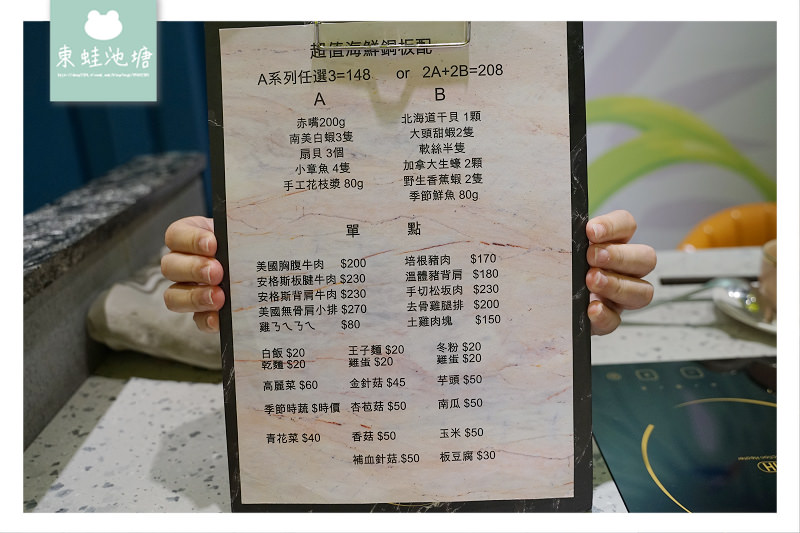 東蛙池塘
超值海鮮銅板配
A系列任選3=148 or 2A+2B=208
A B
赤嘴200g 北海道干貝 1顆
南美白蝦3隻 大頭甜蝦2隻
扇貝 3個 軟絲半隻
小章魚 4隻 加拿大生蠔 2顆
手工花枝漿 80g 野生香蕉蝦 2隻
季節鮮魚 80g
單 點
美國胸腹牛肉 $200 培根豬肉 $170
安格斯板腱牛肉 $230 溫體豬背肩 $180
安格斯背肩牛肉 $230 手切松坂肉 $230
美國無骨肩小排 $270 去骨雞腿排 $200
雞ㄋㄟㄋㄟ $80 土雞肉塊 $150
白飯 $20 王子麵 $20 冬粉 $20
乾麵 $20 雞蛋 $20 雞蛋 $20
高麗菜 $60 金針菇 $45 芋頭 $50
季節時蔬 $時價 杏苞菇 $50 南瓜 $50
青花菜 $40 香菇 $50 玉米 $50
補血針菇 $50 板豆腐 $30